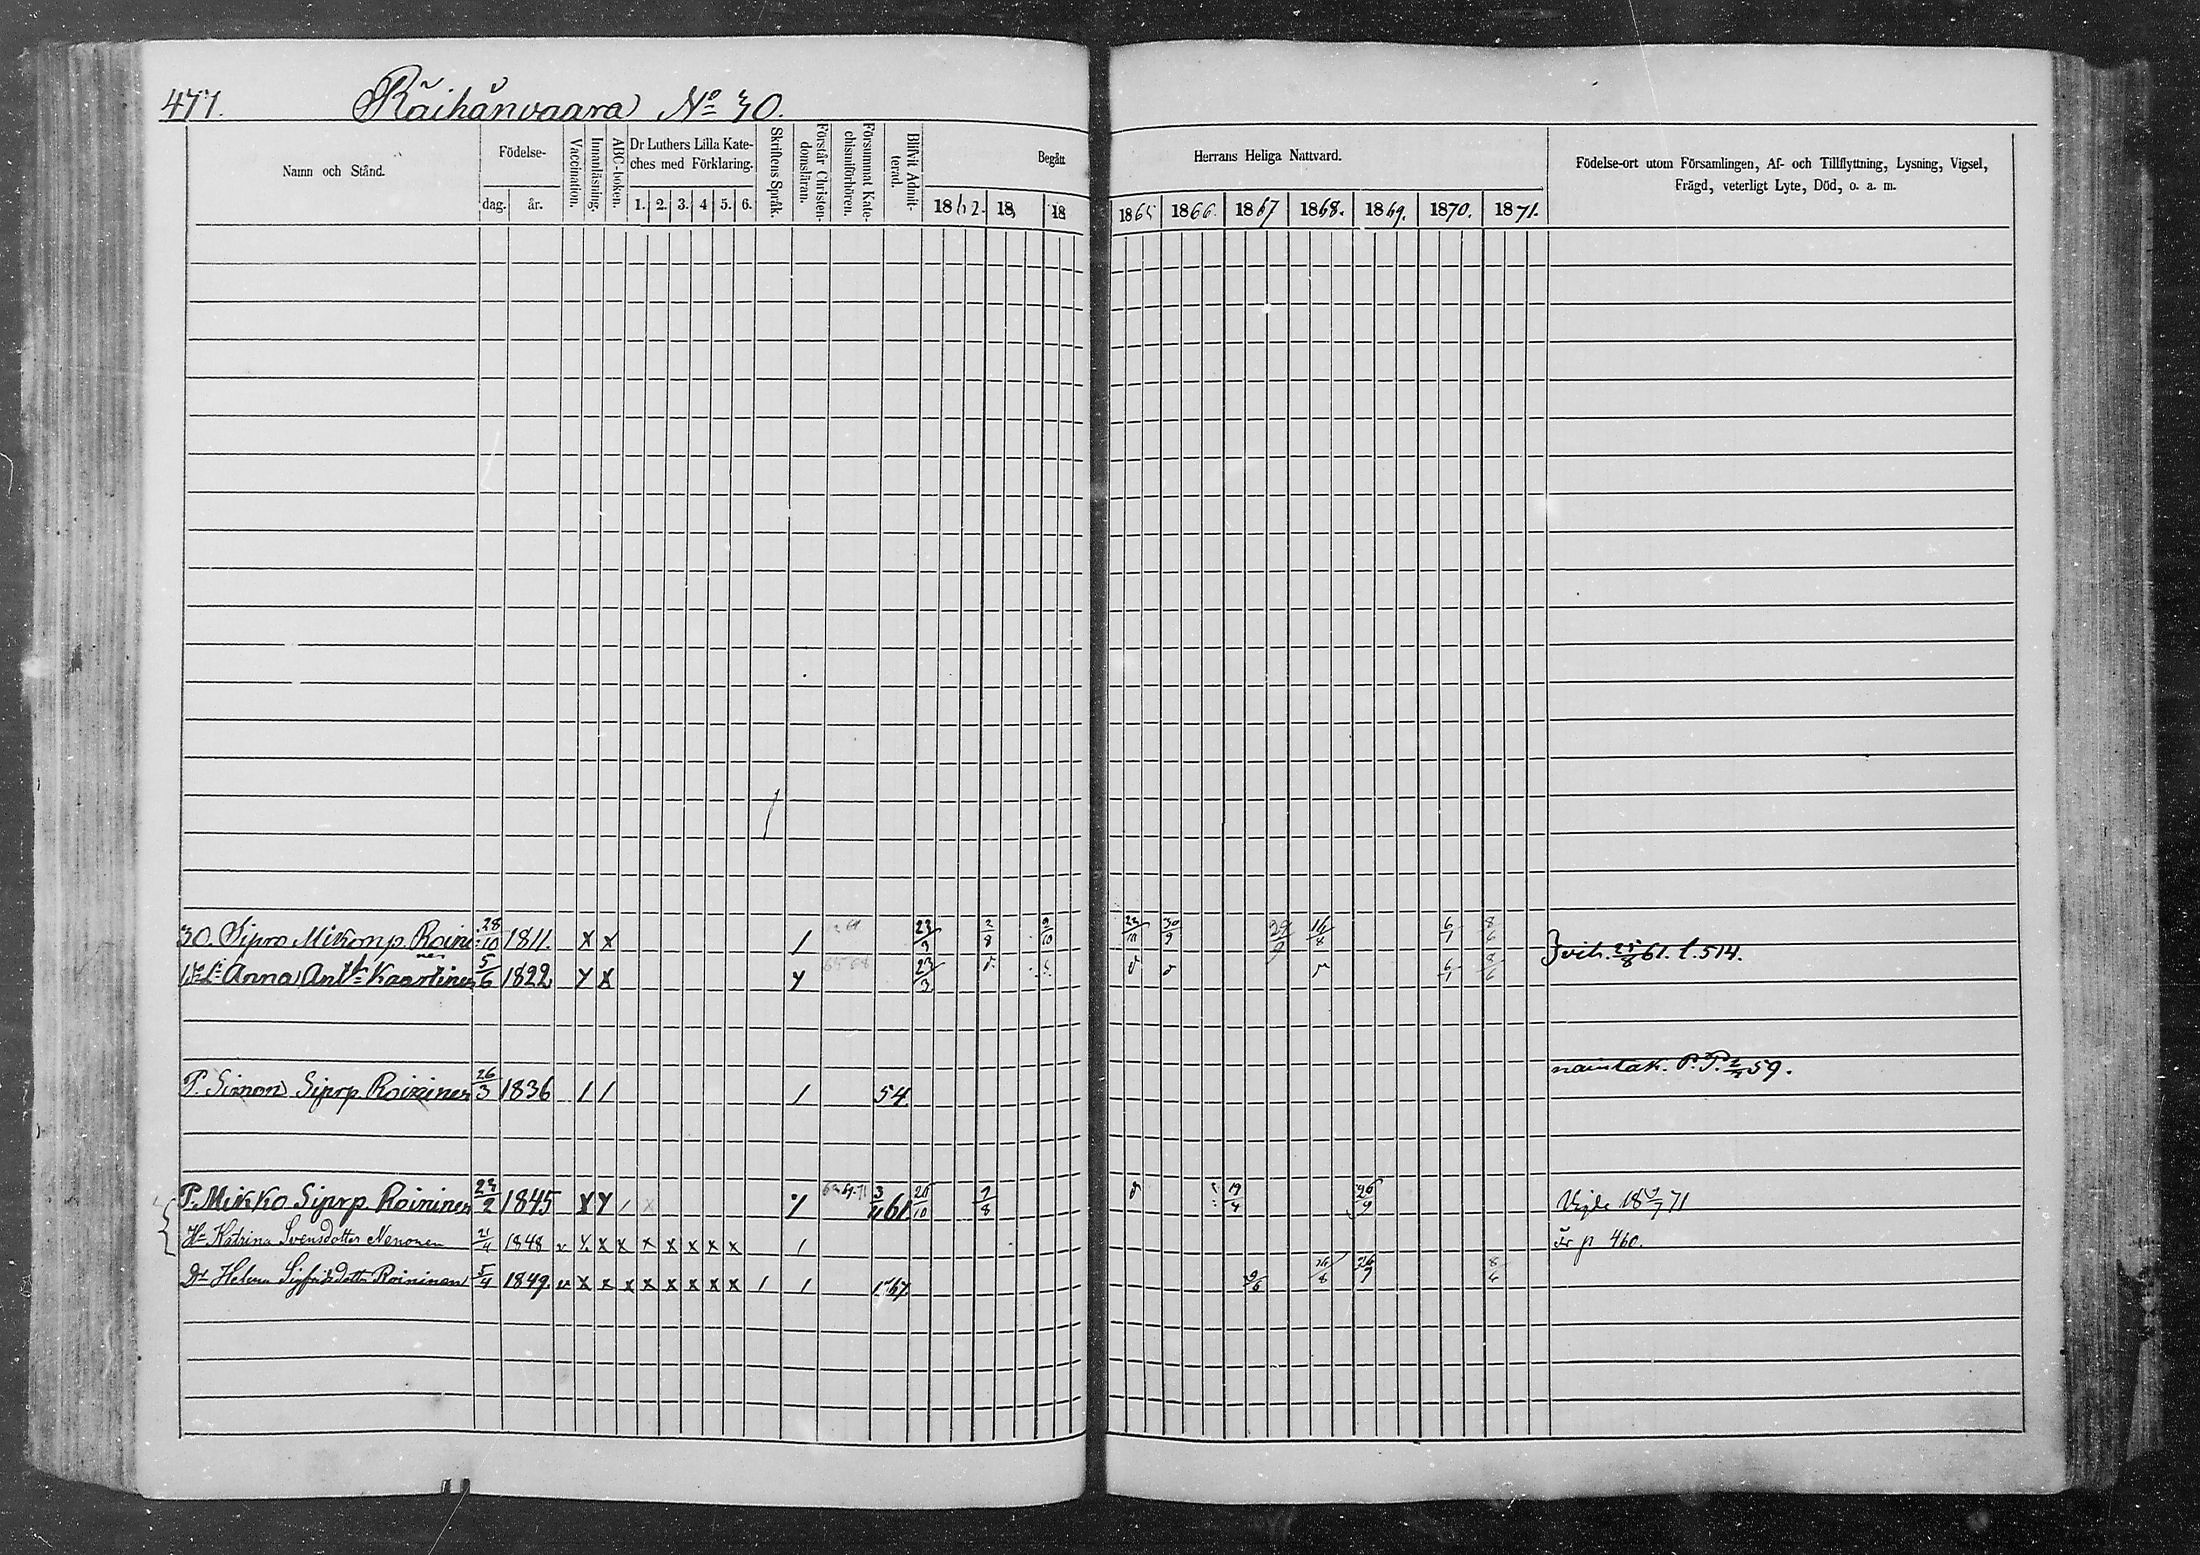 477. Räihänvaara No 30.
Namn och Stånd.
Födelse-
dag. år.
Vaccination.
Innanläsning.
ABC-boken.
Dr Luthers Lilla Kate-
ches med Förklaring.
1. 2. 3. 4 5. 6.
Skriftens Språk.
Förstår Christen-
domsläran.
Försummat Kate-
chismiförhören.
Blifvit Admit-
terad.
Begått Herrans Heliga Nattvard.
1862. 18 18 1865 1866. 1867 1868. 1869. 1870. 1871.
Födelse-ort utom Församlingen, Af- och Tillflyttning, Lysning, Vigsel,
Frägd, veterligt Lyte, Död, o. a. m.
30. Sipro Mikonp. Roini 28/10 1811. x x / 23/3 2/8 9/10 23/10 30/9 29/9 16/8 6/1 8/6
nen
Anna Antt Kaartinen 5/6 1822 y x y 23/3 6/1 8/6 25/8 61. l. 514.
P. Simon Siprp Roininen 26/3 1836 / / / 54. P. P. 59.
P. Mikko Siprp Roininen 23/2 1845 x y 61 7/8 19/4 26/9 71
Hu Katrina Svensdotter Nenonen 21/4 1848 v x x x x x x x x / Fr p 460.
Dr Helena Sigfridsdotter Roininen 5/4 1849. v x x x x x x x x / / 67 26/8 26/9 8/6